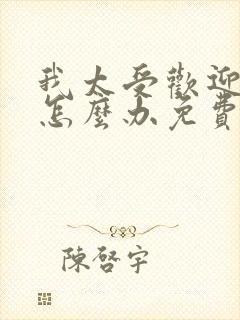 我太受歡迎
怎麼办免費
陳啓宇